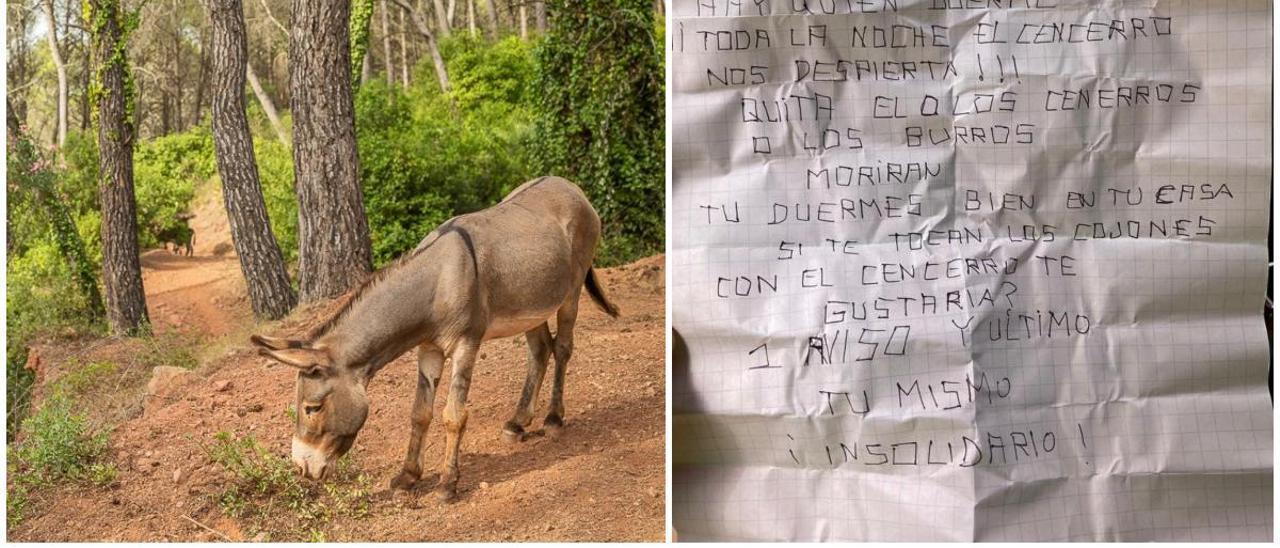 HAY QUIEN DUERME
¡TODA LA NOCHE EL CENCERRO
NOS DESPIERTA!!!
QUITA EL O LOS CENERROS
O LOS BURROS
MORIRAN
TU DUERMES BIEN EN TU CASA
SI TE TOCAN LOS COJONES
CON EL CENCERRO TE
GUSTARIA?
1 AVISO Y ULTIMO
TU MISMO
¡INSOLIDARIO!